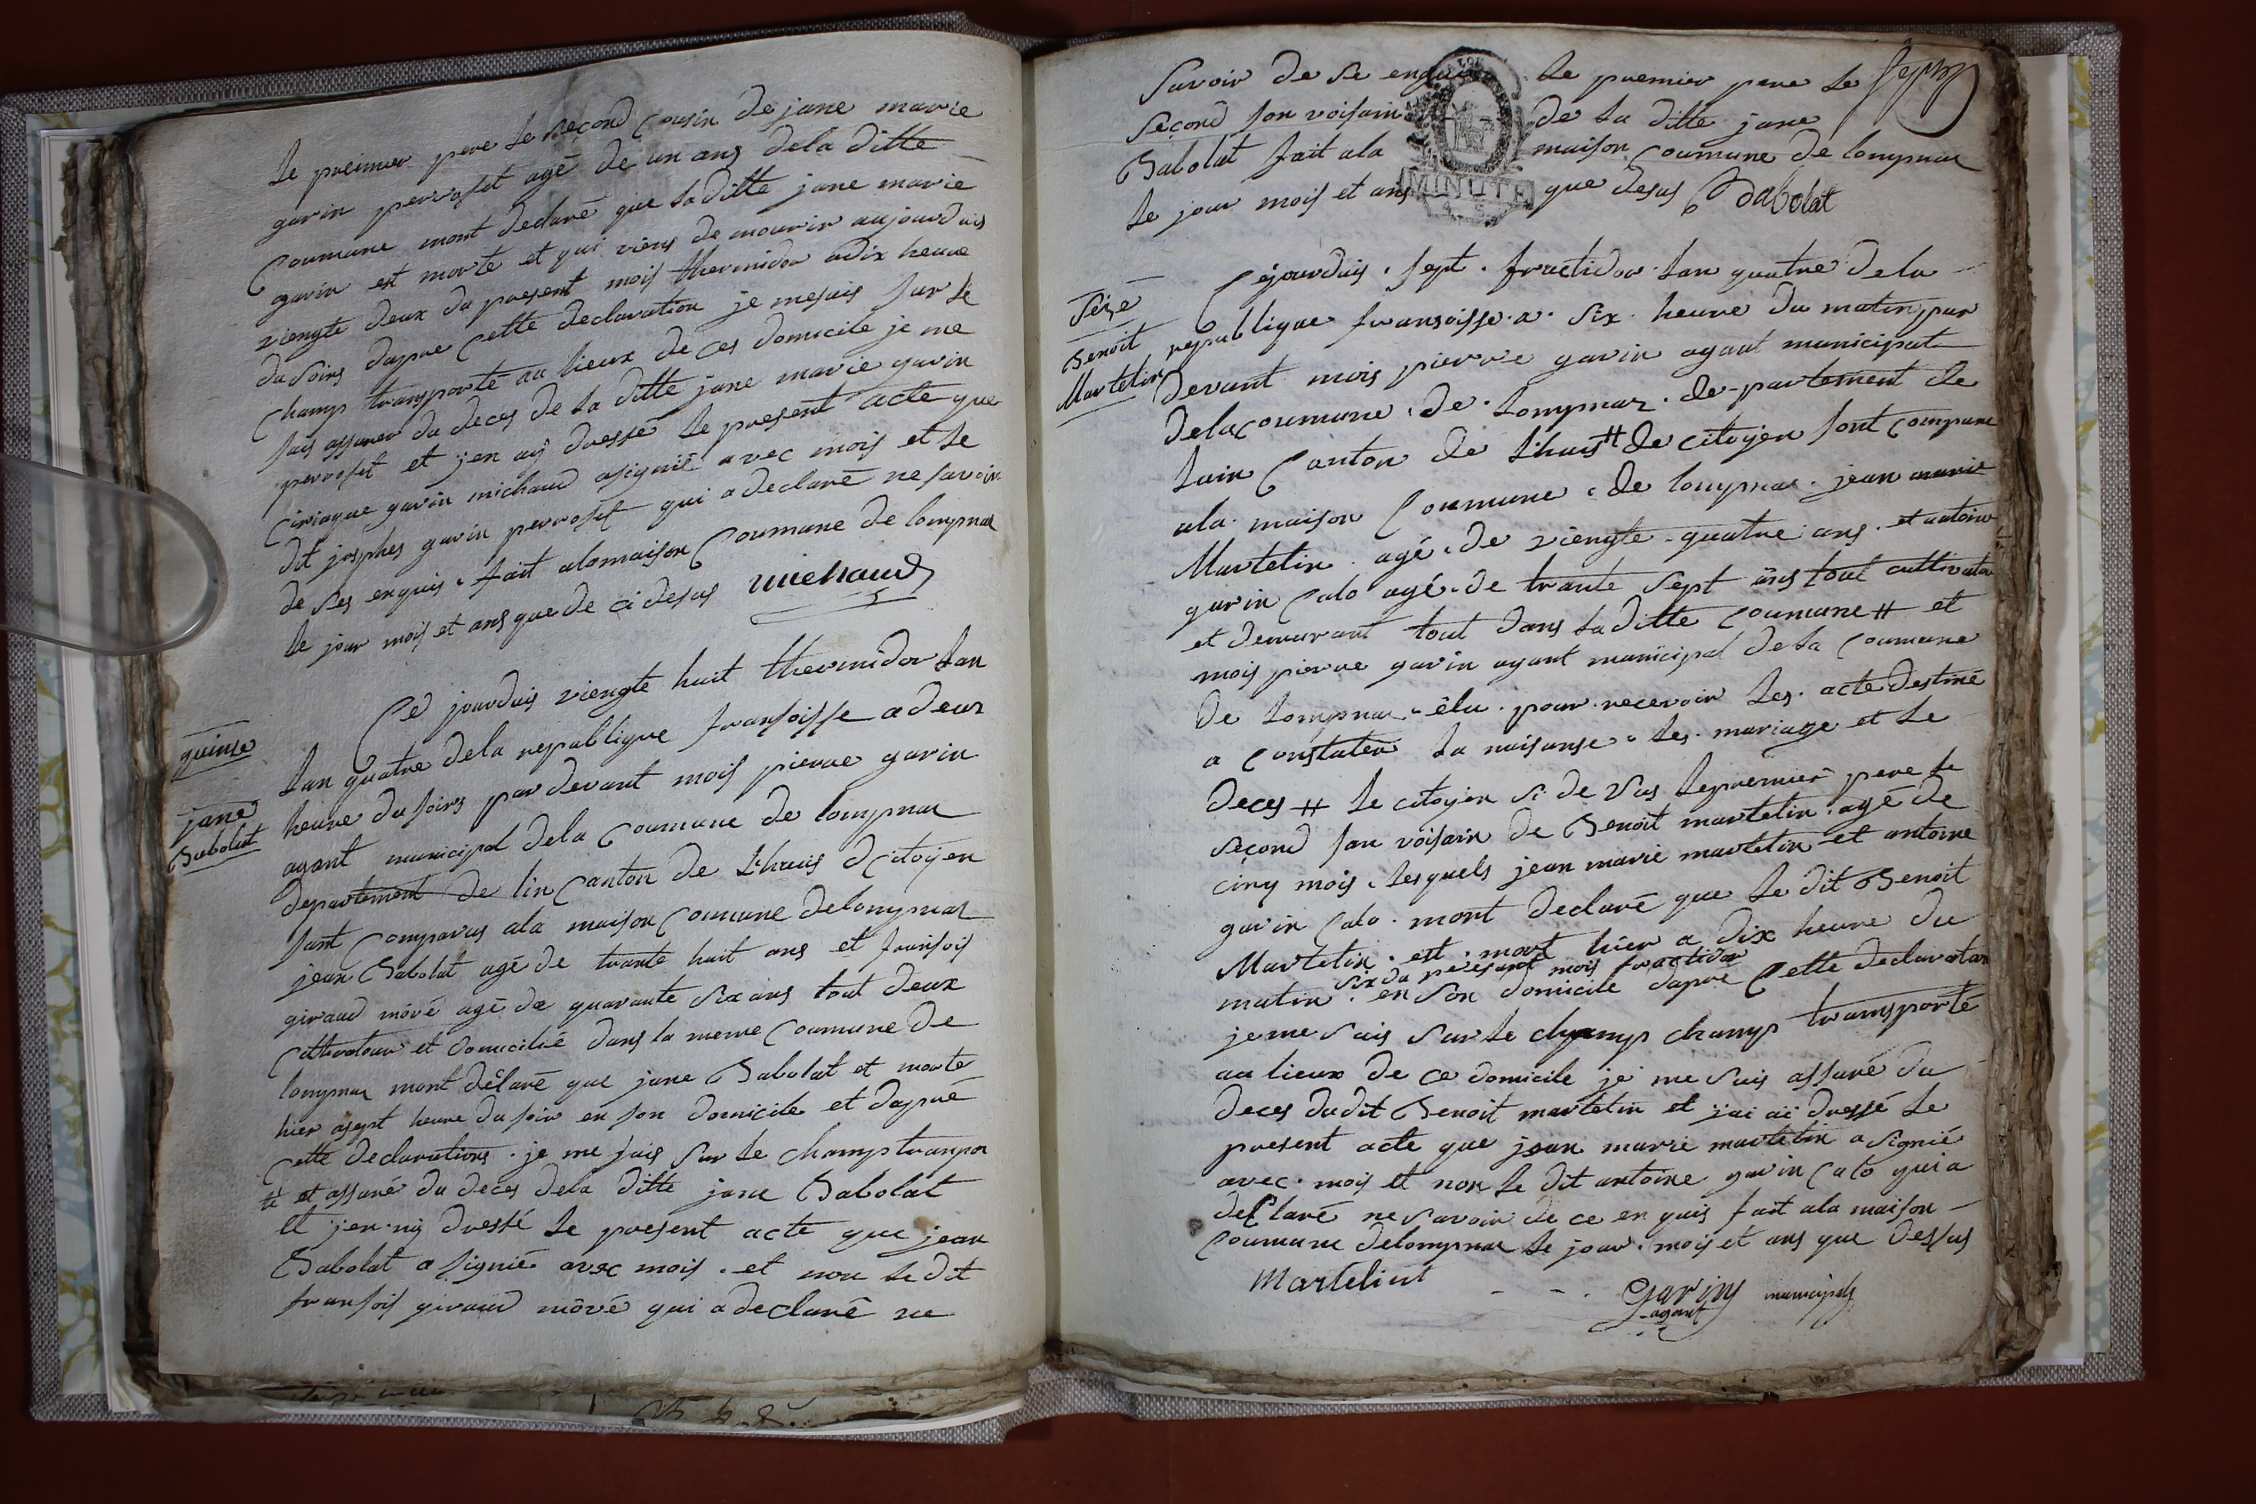 le preimier pere le second cousin de jane marie
gavin perroset agé de un ans dela ditte
Coumune mont declaré que laditte jane marie
gavin est morte et qui viens de mourir aujourduis
viengte deux du present mois thermidor adix heure
du soirs dapre cette declaration je mesuis sur le
champ transporté au lieux de ces domicile je me
suis assurer du deces de la ditte jane marie gavin
perroset et jen aÿ dressé le present acte que
Ciriaque gavin michaud asignié avec mois et le
dit josphes gavin perroset qui a declaré ne savoir
de ses enquis. fait alamaison Coumune de lompnas
le jour mois et ans que de ci desus michaud
quinse
jane
Babolat
Ce jourduis viengte huit thermidor lan
lan quatre dela republique fransoisse a deux
heure du soirs par devant mois pierre gavin
agant municipal dela Coumune de lompnas
departement de lin Canton de Lhuis d citoÿen
sont Comparus ala maison Coumune delompnas
jean Babolat agé de trante huit ans et fransois
giraud môvé agé de quarante six ans tout deux
Cultivatour et domicilié dans la meme Coumune de
lompnas mont délaré que jane Babolat et morte
hier asept heure du soir en son domicile et dapré
Cette declarations. je me suis sur le champ tranpor
# et assuré du deces dela ditte jane Babolat
et jen aÿ dressé le present acte que jean
Babolat a signié avec mois. et non le dit
fransois giraud môvé qui a declaré ne
Savoir de se enquis le premier pere le
second son voisain de la ditte jane
Babolat fait ala maison Coumune de lompnas
le jour mois et ans que desus Babolat
MINUTE
Seize
Benoit
Martelin
Cejourduis. sept. fructidor. lan quatre dela
republique fransoisse. a. six. heure du matin par
devant mois pierre gavin agant municipal
dela coumune. de. Lompnaz. de-partement de
lain Canton de Lhuis # de citoÿen sont compare
ala. maison Coumune. de lompnas. jean marie
Martelin. agé. de viengte-quatre ans. et antoine
gavin Calo agé. de trante sept ans tout cultivator
et demurant tout dans laditte Coumune # et
mois pierre gavin agant municipal de la Coumune
de Lompnas. élu. pour. recevoir les. acte destiné
a Constater la naisanse. les. mariage et le
deces # le citoÿen si de sus lepremier pere le
second son voisain de Benoit martelin. agé de
cinq mois. lesquels jean marie martelin et antoine
gavin Calo. mont declaré que le dit Benoit
Martelin. est. mort hier a dix heure du
six du present mois fructidor
matin. en son domicile dapre Cette declaration
je me suis sur le champ champ transporté
au lieux de ce domicile je me suis assuré du
deces dudit Benoit martelin et j'ai aï dressé le
present acte que jean marie martelin a signié
avec. mois et non le dit antoine gavin Calo qui a
declaré ne savoir de ce en quis fait ala maison
Coumune delompnas le jour. mois et ans que dessus
martelint
Gavin municipals
agant